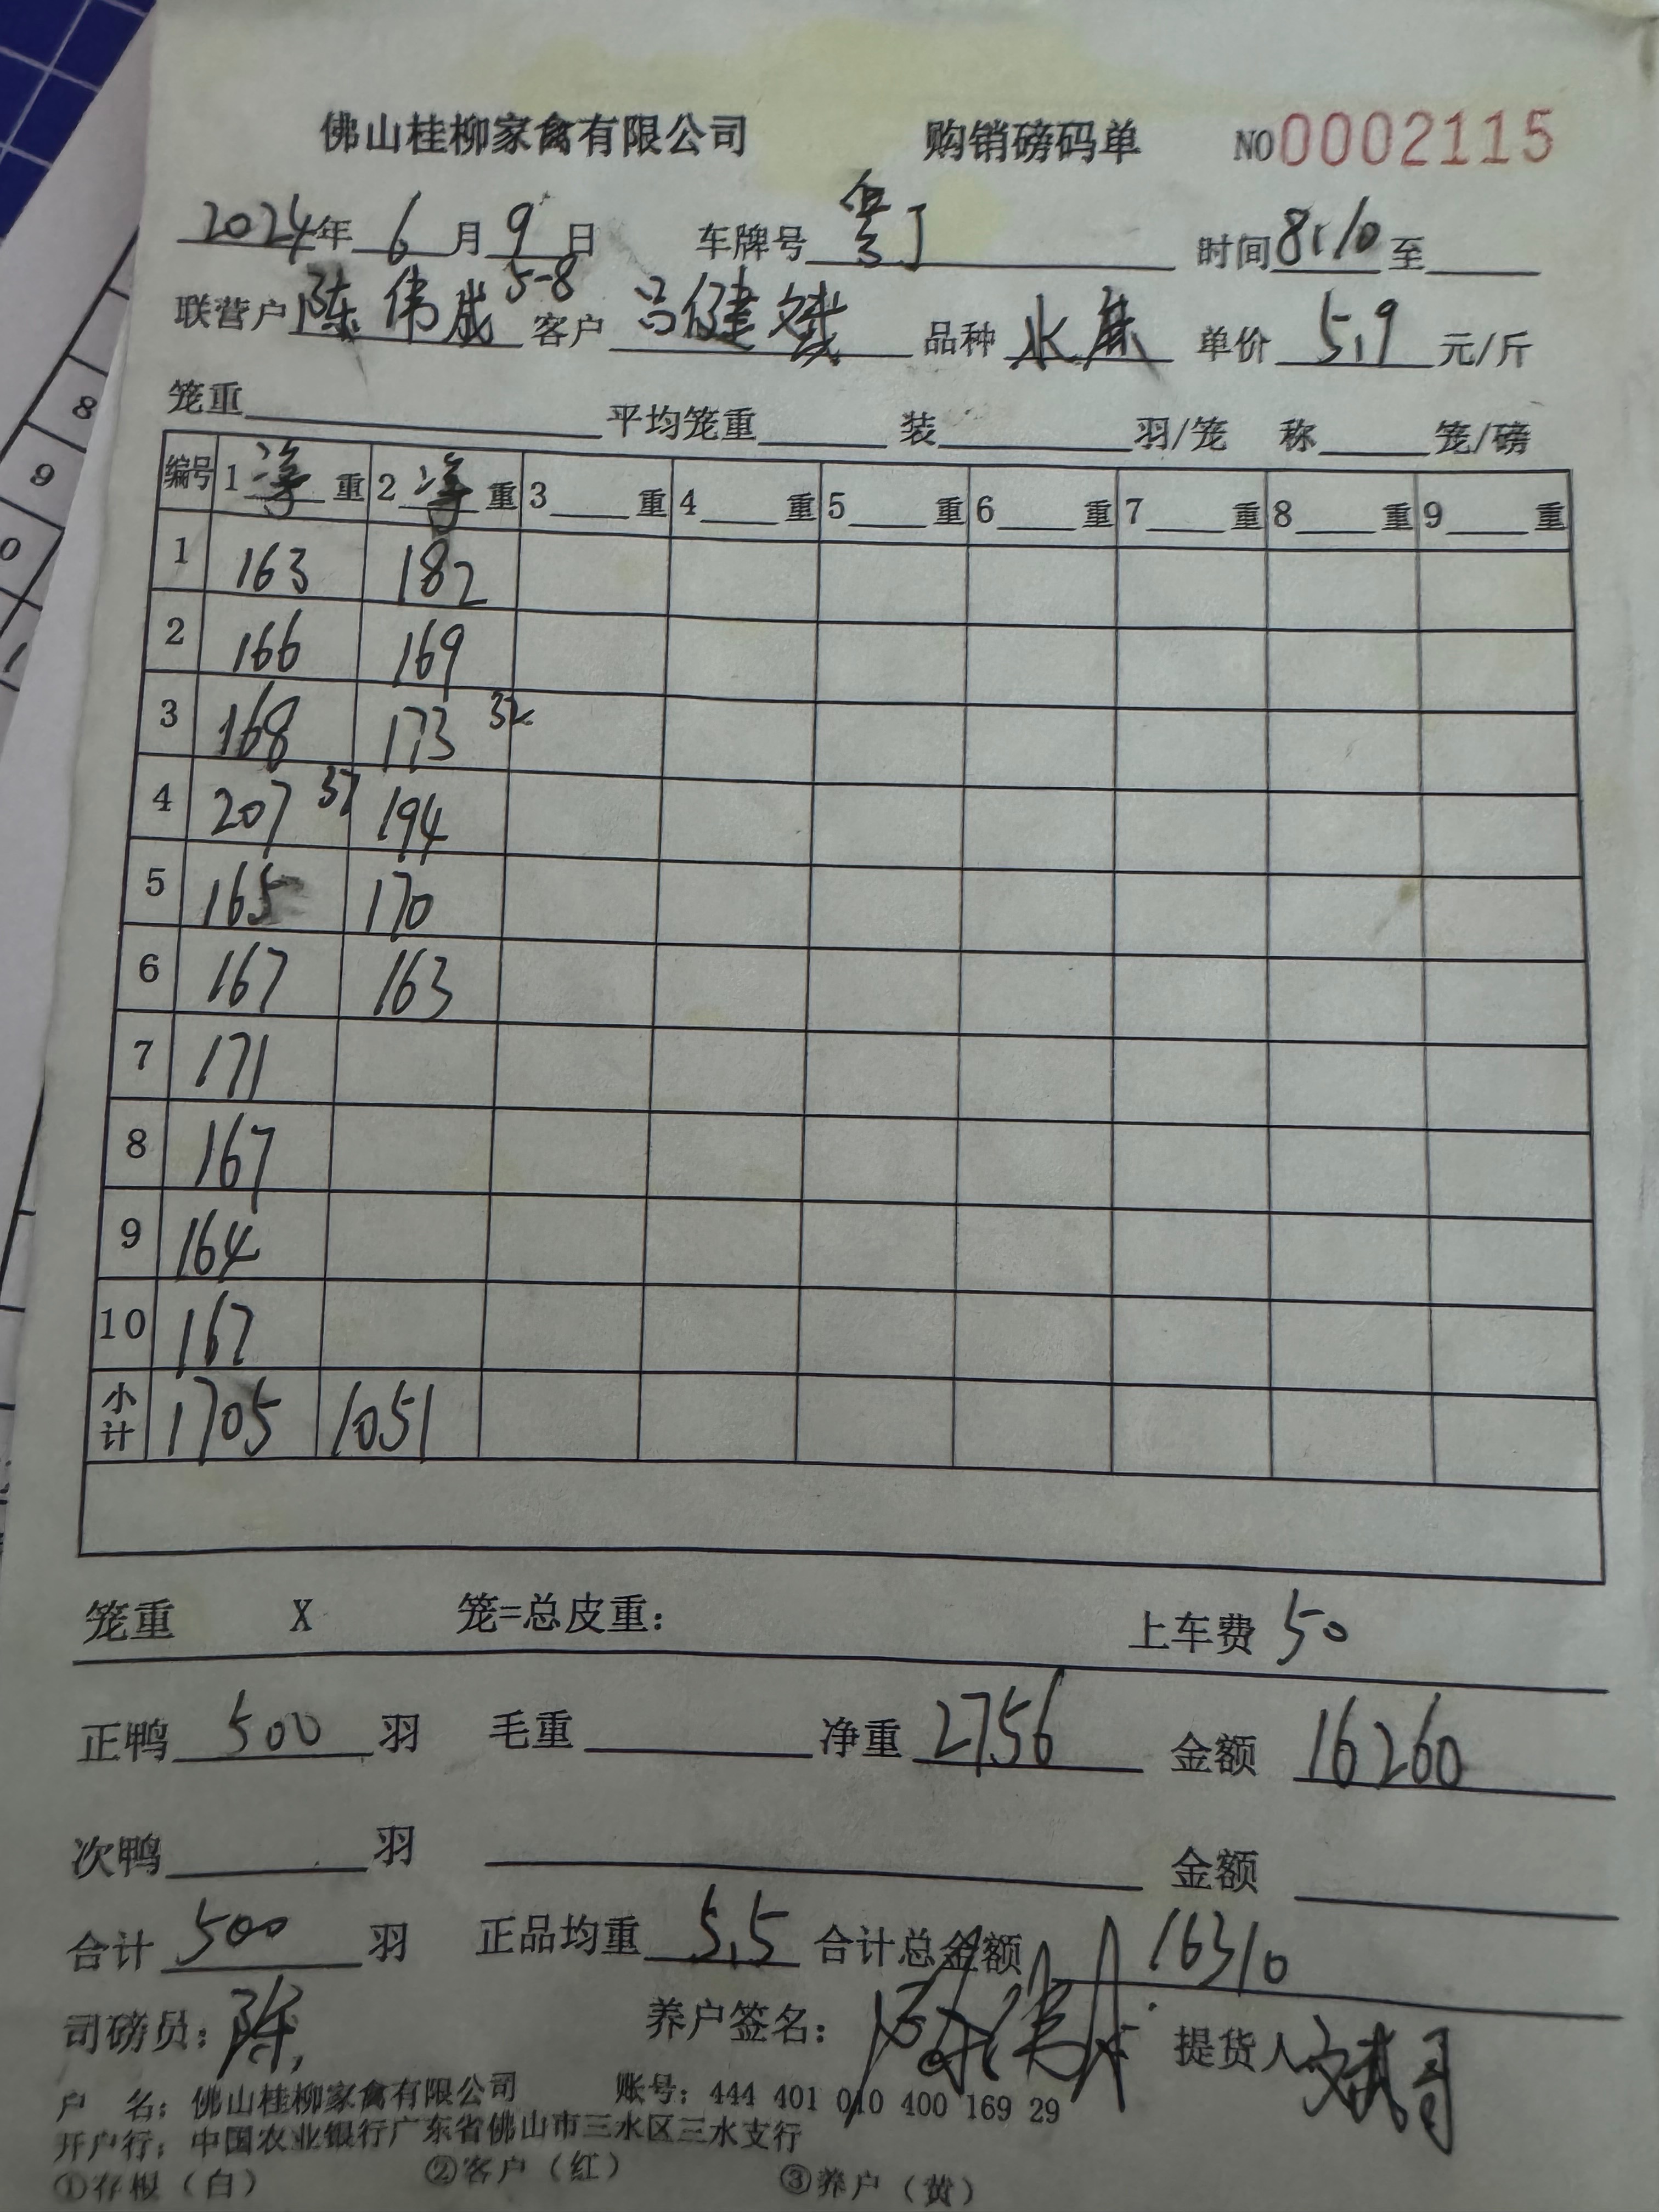 佛山桂柳家禽有限公司 购销磅码单 NO 0002115
2024年 6月 9日 车牌号 时间 8:10 至
联营户 陈伟成 5-8 客户 吕健斌 品种 水麻 单价 5.9 元/斤
笼重 平均笼重 装 羽/笼 称 笼/磅
编号 1 净 重 2 净 重 3 重 4 重 5 重 6 重 7 重 8 重 9 重
1 163 182
2 166 169
3 168 173 32
4 207 37 194
5 165 170
6 167 163
7 171
8 167
9 164
10 167
小计 1705 1051
笼重 X 笼=总皮重: 上车费 50
正鸭 500 羽 毛重 净重 2756 金额 16260
次鸭 羽 金额
合计 500 羽 正品均重 5.5 合计总金额 16310
司磅员: 陈 养户签名: 提货人 斌哥
户 名: 佛山桂柳家禽有限公司 账号: 444 401 010 400 169 29
开户行: 中国农业银行广东省佛山市三水区三水支行
①存根（白） ②客户（红） ③养户（黄）
8
9
0
1